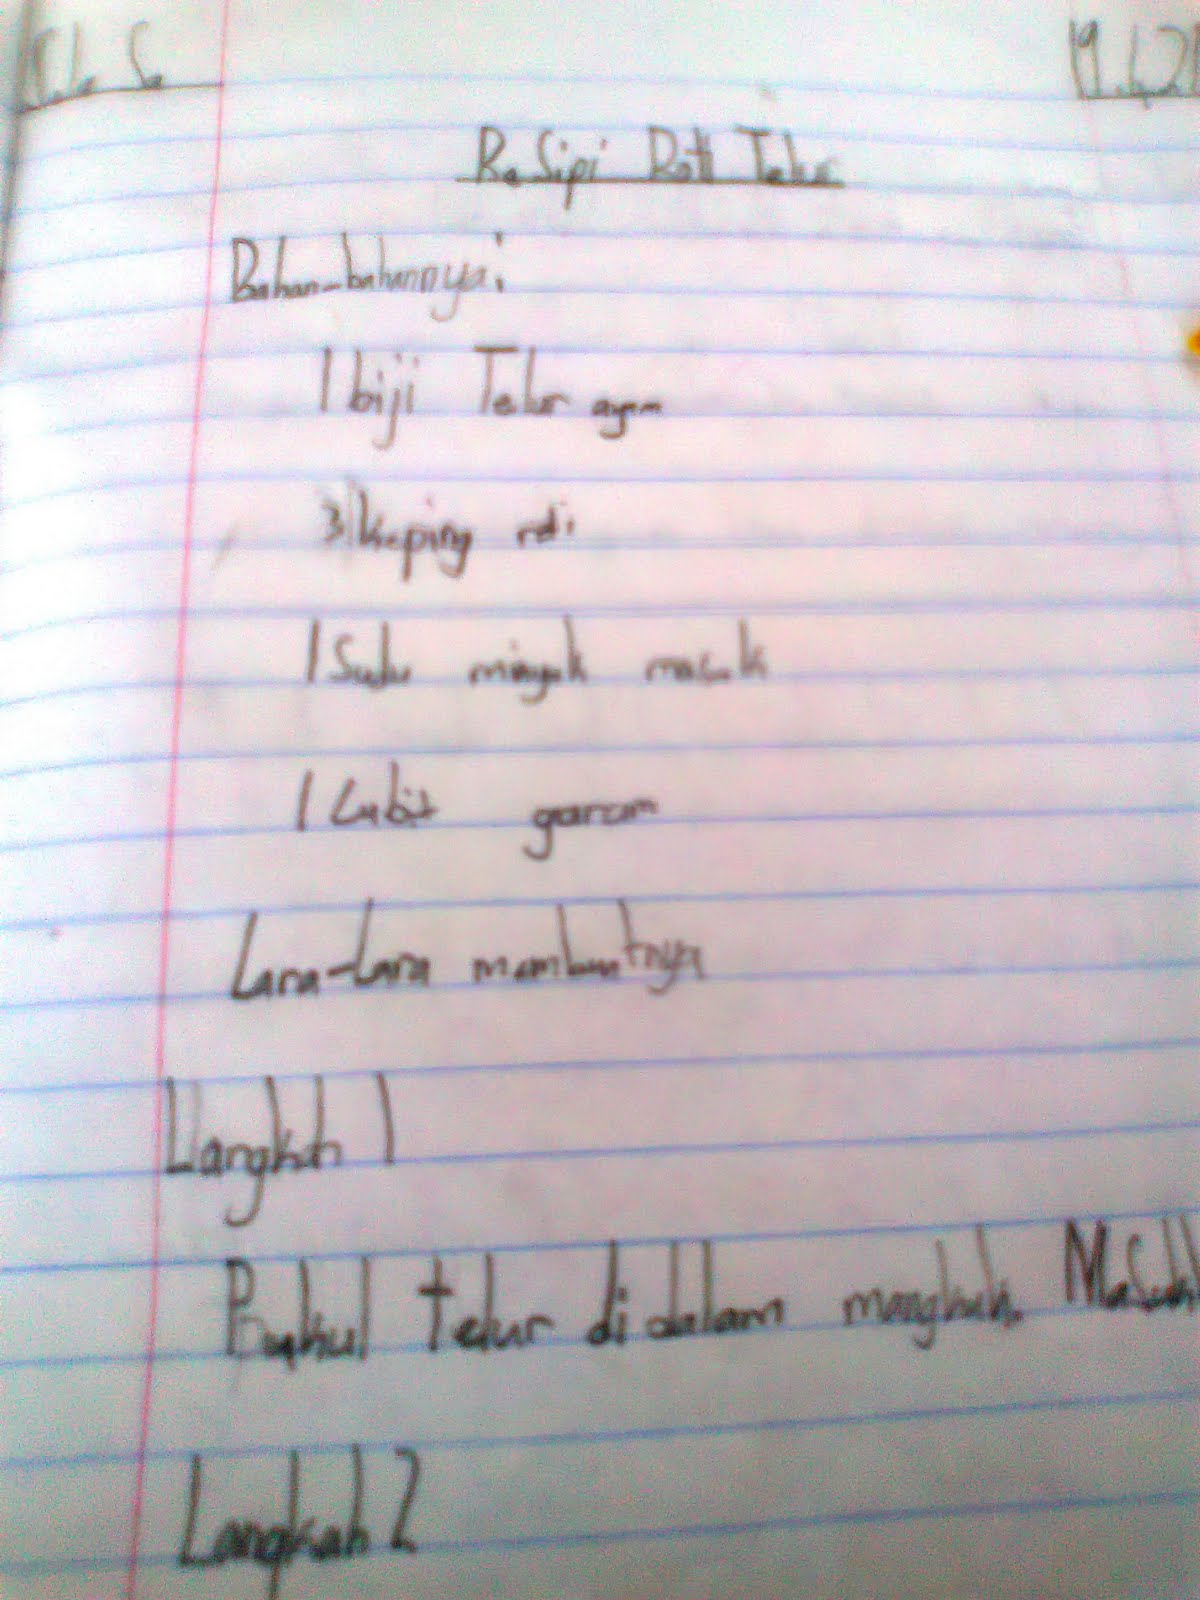 Resipi Roti Telur
Bahan-bahannya:
1 biji Telur ayam
3 keping roti
1 Sudu minyak masak
1 Cubit garam
Cara-Cara membuatnya
Langkah 1
Pukul telur di dalam mangkuk. Masuk
Langkah 2